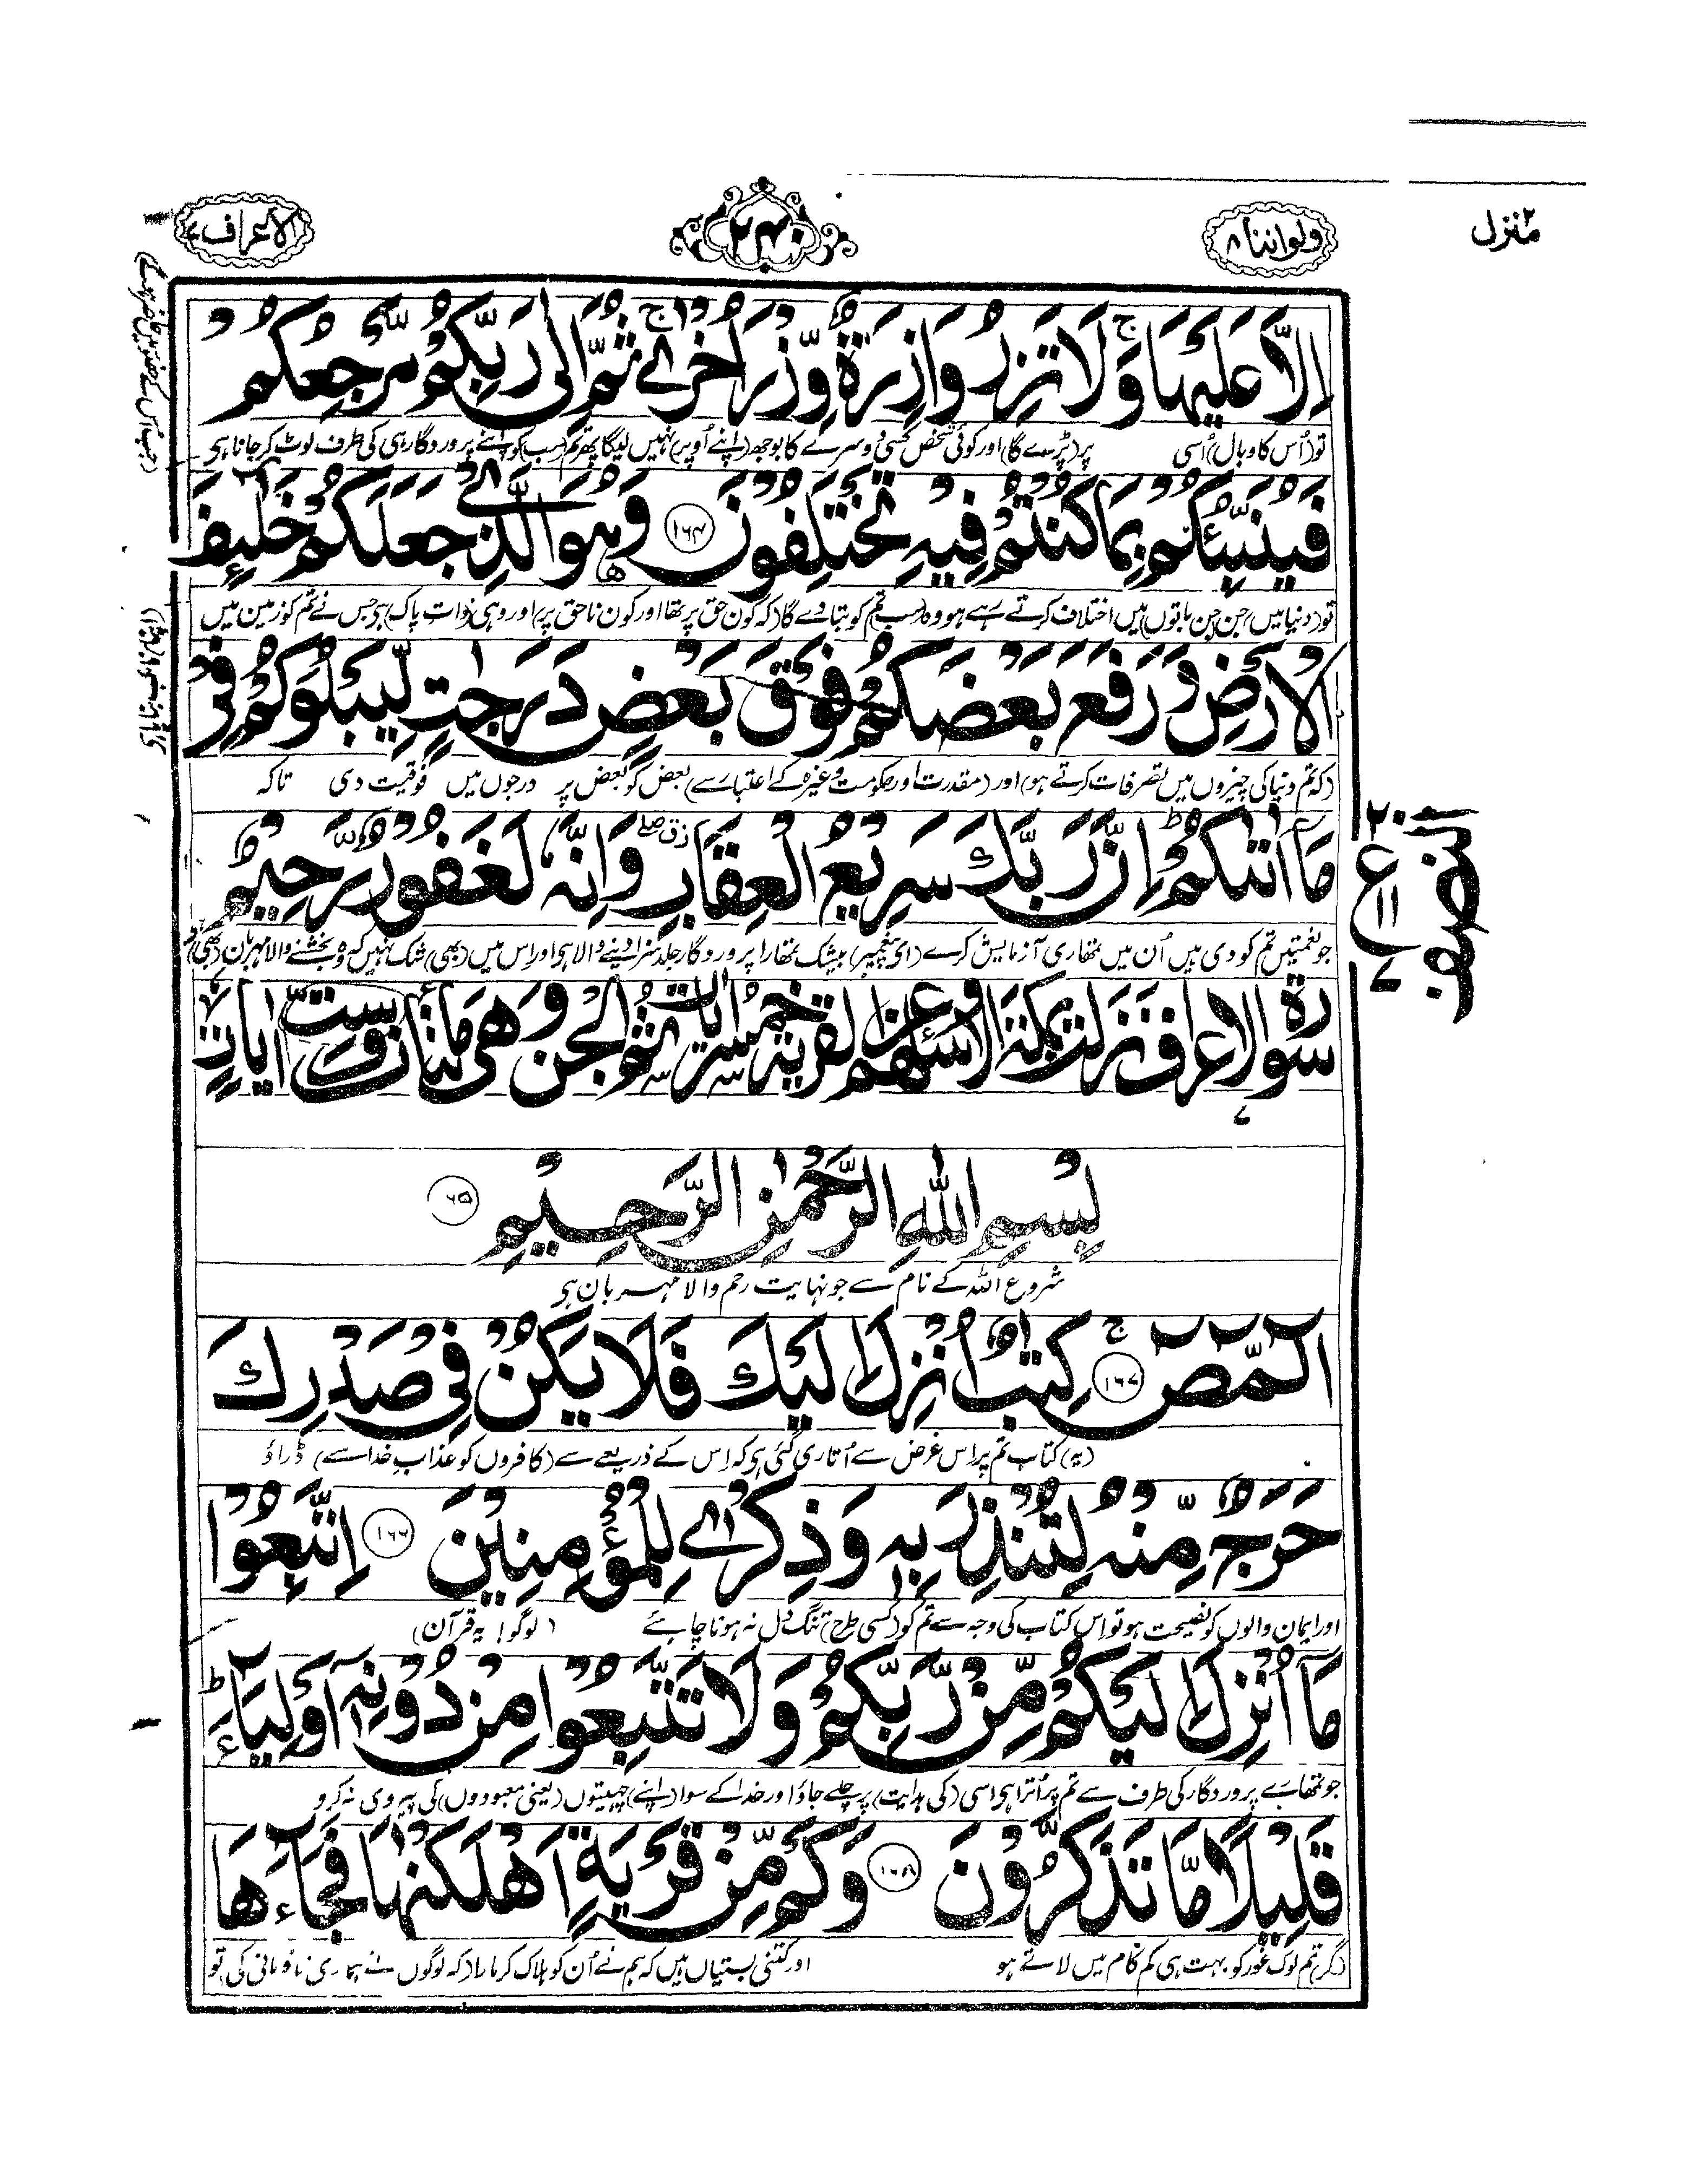 منزل ۲
ولو اننا ۸
۲۴۰
الاعراف ۷
اِلَّا عَلَيْهَا ۚ وَلَا تَزِرُ وَازِرَةٌ وِّزْرَ اُخْرٰى ۚ ثُمَّ اِلٰى رَبِّكُمْ مَّرْجِعُكُمْ
تو (اُس کا وبال) اُسی پر (پڑے گا) اور کوئی شخص کسی دوسرے کا بوجھ (اپنے اُوپر) نہیں لیگا پھر تم (سب) کو اپنے پروردگار ہی کی طرف لوٹ کر جانا ہی
فَيُنَبِّئُكُمْ بِمَا كُنْتُمْ فِيْهِ تَخْتَلِفُوْنَ ۱۶۴ وَهُوَ الَّذِيْ جَعَلَكُمْ خَلٰٓئِفَ
تو (دنیا میں) جن جن باتوں میں اختلاف کرتے رہے ہو وہ (سب) تم کو بتا دے گا (کہ کون حق پر تھا اور کون ناحق پر) اور وہی (ذات پاک) ہی جس نے تم کو زمین میں
الْاَرْضِ وَرَفَعَ بَعْضَكُمْ فَوْقَ بَعْضٍ دَرَجٰتٍ لِّيَبْلُوَكُمْ فِيْ
(کہ تم دنیا کی چیزوں میں تصرفات کرتے ہو) اور (مقدرت اور حکومت وغیرہ کے اعتبار سے) بعض کو بعض پر درجوں میں فوقیت دی تاکہ
مَآ اٰتٰىكُمْ ؕ اِنَّ رَبَّكَ سَرِيْعُ الْعِقَابِ وَاِنَّهٗ لَغَفُوْرٌ رَّحِيْمٌ
جو نعمتیں تم کو دی ہیں اُن میں تمھاری آزمایش کرے (ای پیغمبر) بیشک تمھارا پروردگار جلد سزا دینے والا ہی اور اِس میں (بھی) شک نہیں کہ وہ بخشنے والا مہربان (بھی)
سورة الاعراف نزلت بمكة الا وسئلهم عن القرية خمس ايات وهى مائتان وست ايات
بِسْمِ اللّٰهِ الرَّحْمٰنِ الرَّحِيْمِ
شروع اللہ کے نام سے جو نہایت رحم والا مہربان ہی
الٓمّٓصٓ ۚ ۱۶۷ كِتٰبٌ اُنْزِلَ اِلَيْكَ فَلَا يَكُنْ فِيْ صَدْرِكَ
(یہ) کتاب تم پر اس غرض سے اُتاری گئی ہی کہ اِس کے ذریعے سے (کافروں کو عذابِ خدا سے) ڈراؤ
حَرَجٌ مِّنْهُ لِتُنْذِرَ بِهٖ وَذِكْرٰى لِلْمُؤْمِنِيْنَ ۱۶۷ اِتَّبِعُوْا
اور ایمان والوں کو نصیحت ہو تو اِس کتاب کی وجہ سے تم کو (کسی طرح) تنگ دل نہ ہونا چاہئے (لوگو! یہ قرآن)
مَآ اُنْزِلَ اِلَيْكُمْ مِّنْ رَّبِّكُمْ وَلَا تَتَّبِعُوْا مِنْ دُوْنِهٖٓ اَوْلِيَآءَ ؕ
جو تمھارے پروردگار کی طرف سے تم پر اُترا ہی اسی (کی ہدایت) پر چلے جاؤ اور خدا کے سوا (اپنے) چہیتوں (یعنی معبودوں) کی پیروی نہ کرو
قَلِيْلًا مَّا تَذَكَّرُوْنَ ۱۶۸ وَكَمْ مِّنْ قَرْيَةٍ اَهْلَكْنٰهَا فَجَآءَهَا
(مگر) تم لوگ غور کو بہت ہی کم کام میں لاتے ہو اور کتنی بستیاں ہیں کہ ہم نے اُن کو ہلاک کر مارا (کہ لوگوں نے ہماری نافرمانی کی) تو
النصف